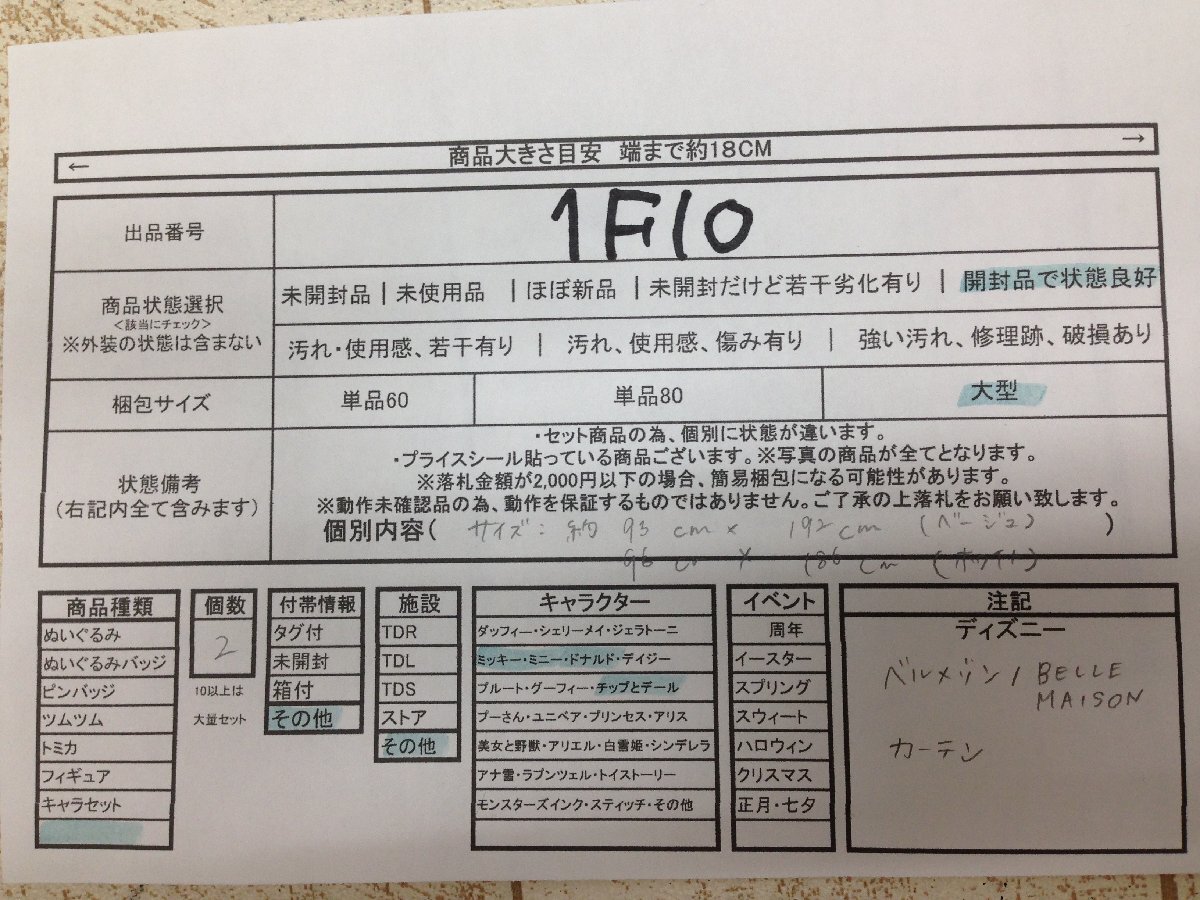 ← 商品大きさ目安 端まで約18CM →
出品番号 1F10
商品状態選択
<該当にチェック>
※外装の状態は含まない
未開封品 | 未使用品 | ほぼ新品 | 未開封だけど若干劣化有り | 開封品で状態良好
汚れ・使用感、若干有り | 汚れ、使用感、傷み有り | 強い汚れ、修理跡、破損あり
梱包サイズ 単品60 単品80 大型
状態備考
(右記内全て含みます)
・セット商品の為、個別に状態が違います。
・プライスシール貼っている商品ございます。※写真の商品が全てとなります。
※落札金額が2,000円以下の場合、簡易梱包になる可能性があります。
※動作未確認品の為、動作を保証するものではありません。ご了承の上落札をお願い致します。
個別内容( サイズ:約 93 cm × 192cm (ベージュ) )
96 cm × 186 cm (ホワイト)
商品種類
ぬいぐるみ
ぬいぐるみバッジ
ピンバッジ
ツムツム
トミカ
フィギュア
キャラセット
個数
2
10以上は
大量セット
付帯情報
タグ付
未開封
箱付
その他
施設
TDR
TDL
TDS
ストア
その他
キャラクター
ダッフィー・シェリーメイ・ジェラトーニ
ミッキー・ミニー・ドナルド・デイジー
プルート・グーフィー・チップとデール
プーさん・ユニベア・プリンセス・アリス
美女と野獣・アリエル・白雪姫・シンデレラ
アナ雪・ラプンツェル・トイストーリー
モンスターズインク・スティッチ・その他
イベント
周年
イースター
スプリング
スウィート
ハロウィン
クリスマス
正月・七夕
注記
ディズニー
ベルメゾン / BELLE
MAISON
カーテン